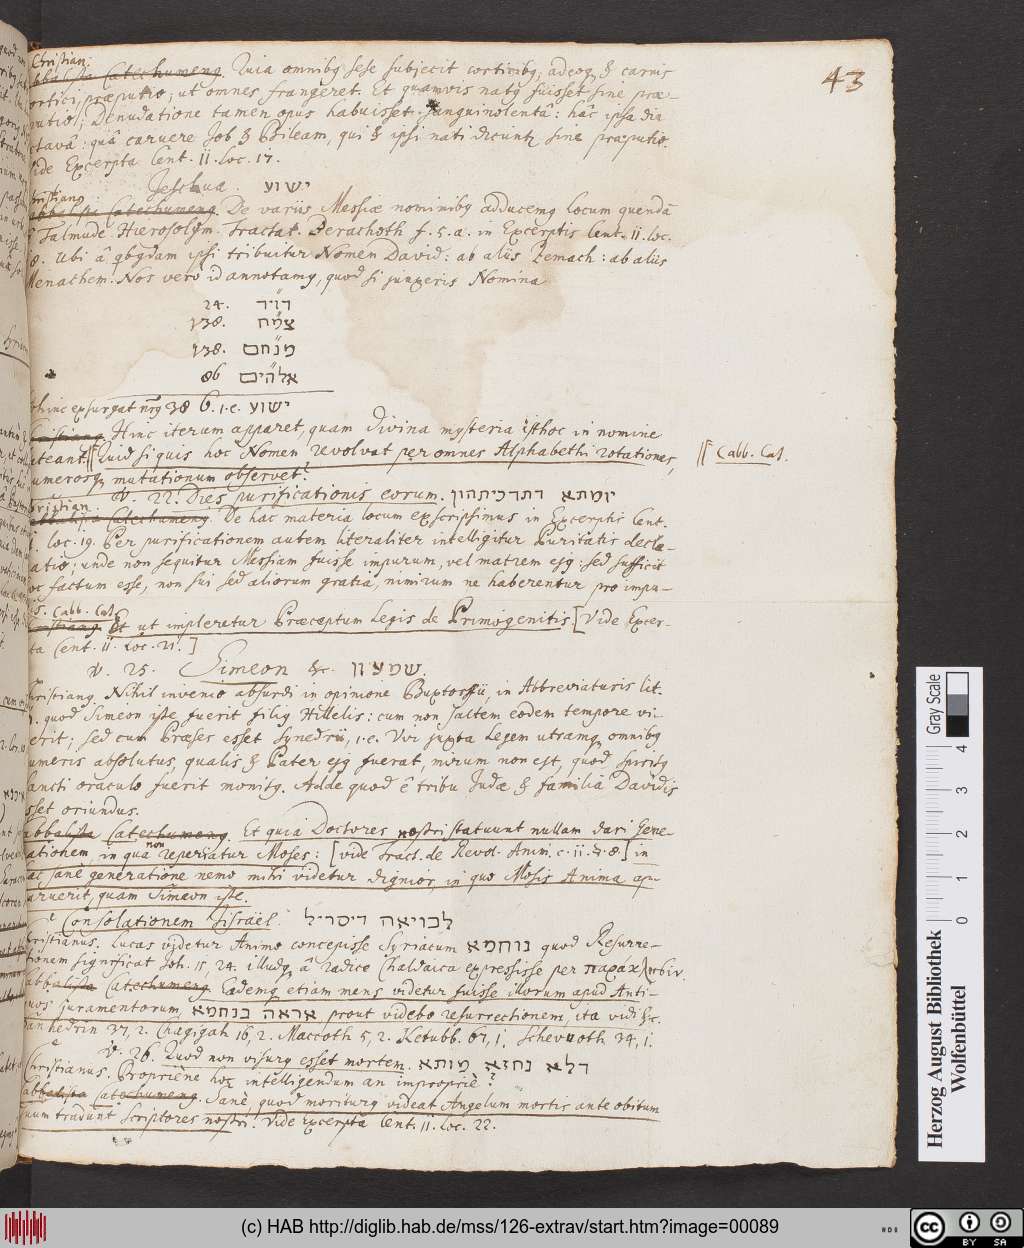 Christian:
Cabbalista Catechumeng. Quia omnibg sese subjecit corticibg, adeoq & carnis
cortici, præputio; ut omnes frangeret. Et quamvis natg fuisset sine præ-
putio; Denudatione tamen opus habuisset sanguinolentâ: hâc ipsâ die
octavâ: quâ caruere Job & Bileam, qui & ipsi nati dicuntr sine præputio.
Vide Excerpta Cent. II. loc. 17.
43
Jeschua. ישוע
Christiang
Catechumeng. De variis Messiæ nominibg adducemg locum quendā
Talmude Hierosolym. Tractat. Berachoth f. 5. a. in Excerptis Cent. II. loc.
8. Ubi â qbgdam ipsi tribuitur Nomen David: ab aliis Zemach: ab aliis
Menachem. Nos verò id annotamg, quod si junxeris Nomina
24. דויד
138. צמח
138. מנחם
86 אלהים
exhinc exsurgat nrg 386. i.e. ישוע
Christiang. Hinc iterum apparet, quam divina mysteria isthoc in nomine
lateant. Quid si quis hoc Nomen revolvat per omnes Alphabethi rotationes,
numerosq mutationum observet?
Cabb. Cat.
v. 22. Dies purificationis eorum. יומתא דתדכיתהון
Christian.
Cabbalista Catechumeng. De hac materia locum exscripsimus in Excerptis Cent.
II. loc. 19. Per purificationem autem literaliter intelligitur Puritatis decla-
ratio; unde non sequitur Messiam fuisse impurum, vel matrem ejg: sed sufficit
hoc factum esse, non sui sed aliorum gratia, nimirum ne haberentur pro impu-
ris. Cabb. Cat.
Christiang. Et ut impleratur Præceptum Legis de Primogenitis [Vide Excer-
pta Cent. II. Loc. 21.]
v. 25. Simeon &c. שמעון.
Christiang. Nihil invenio absurdi in opinione Buxtorfii, in Abbreviaturis lit.
quod Simeon iste fuerit filig Hillelis: cum non saltem eodem tempore vi-
xerit; sed cum Præses esset Synedrii, i.e. Vir juxta Legem utramq omnibg
numeris absolutus, qualis & Pater ejg fuerat, mirum non est, quod Spiritg
Sancti oraculo fuerit monitg. Adde quod ê tribu Judæ, & familiâ Davidis
esset oriundus.
Cabbalista Catechumeng. Et quia Doctores nostri statuunt nullam dari Gene-
rationem, in quâ non reperiatur Moses: [vide Tract. de Revol. Anim. c. II. §. 8.] in
hac sanè generatione nemo mihi videtur dignior, in quo Mosis Anima ap-
paruerit, quam Simeon iste.
Consolationem Jisraël. לבויאה דיסריל
Christianus. Lucas videtur Animo concepisse Syriacum נוחמא quod Resurre-
ctionem significat Joh. 11, 24. illudq â radice Chaldaica expressisse per παράκλησιν.
Cabbalista Catechumeng. Eademg etiam mens videtur fuisse illorum apud Anti-
quos Juramentorum, אראה בנחמא prout videbo resurrectionem, ita vidi &c.
Sanhedrin 37, 2. Chagigah 16, 2. Maccoth 5, 2. Ketubb. 67, 1. Schevuoth 34, 1.
v. 26. Quod non visurg esset mortem. דלא נחזא מותא
Christianus. Propriène hoc intelligendum an impropriè?
Cabbalista Catechumeng. Sanè, quod moriturg videat Angelum mortis ante obitum
suum tradunt Scriptores nostri. Vide Excerpta Cent. II. loc. 22.
Herzog August Bibliothek
Wolfenbüttel
Gray Scale
0 1 2 3 4
(c) HAB http://diglib.hab.de/mss/126-extrav/start.htm?image=00089
CC BY SA